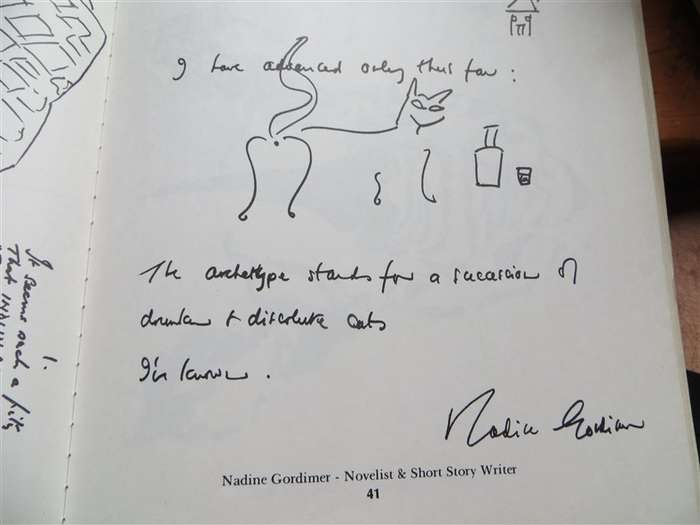 I have advanced only thus far:
The archetype stands for a succession of
drunken & dissolute cats
I've known.
Nadine Gordimer
Nadine Gordimer - Novelist & Short Story Writer
41
1.
It seems such a pity
That